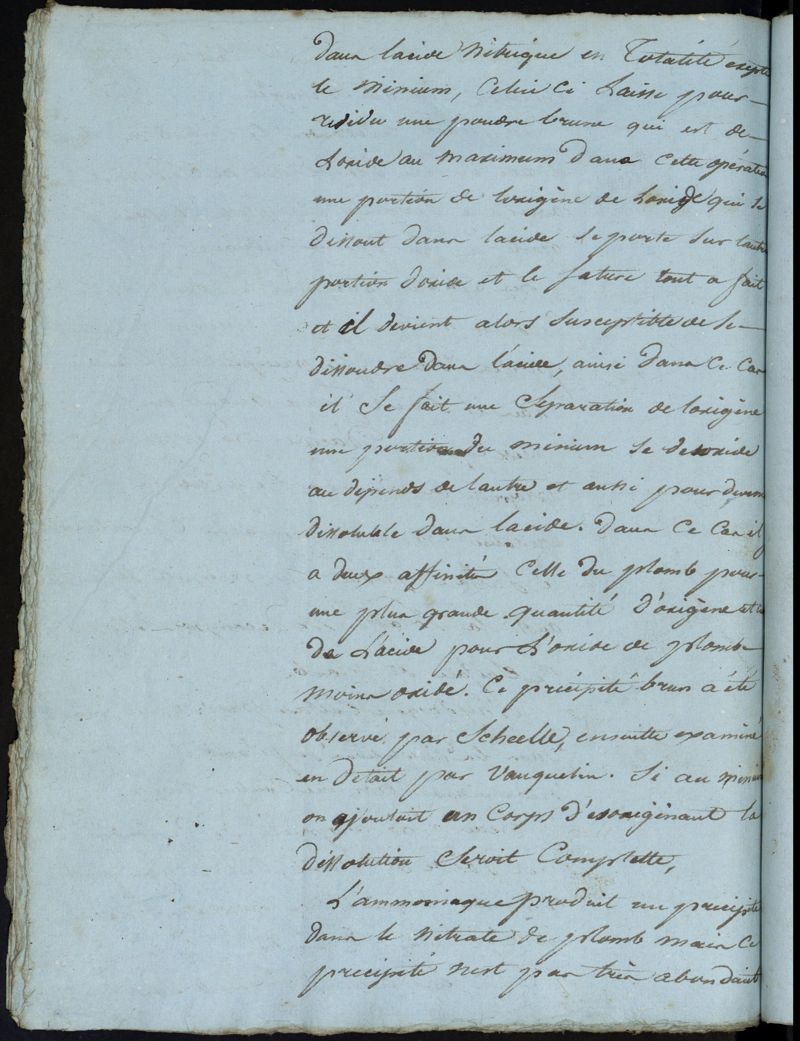 dans lacide Nitrique en Totalité excepté
le Minium, Celui Ci Laisse pour
residu une poudre brune qui est de
Loxide au maximum Dans Cette opération
une portion de loxigène de Loxide qui se
dissout dans lacide se porte sur lautre
portion doxide et le sature tout a fait
et il devient alors susceptible de se
dissoudre dans lacide, ainsi dans Ce Cas
il Se fait une Séparation de loxigène
une portion du minium se desoxide
au dépends de lautre et aussi pour devenir
dissoluble dans lacide. dans Ce Cas il y
a deux affinités Celle du plomb pour
une plus grande quantité d'oxigène et
De L'acide pour L'oxide de plomb
moins oxidé. Ce précipité brun a été
observé par Scheelle, ensuitte examiné
en Détail par Vauquelin. Si au minium
on ajoutait un Corps D'esoxigénant la
dissolution Seroit Complette,
L'ammoniaque produit un precipité
dans le Nitrate de plomb mais Ce
precipité nest pas très abondant